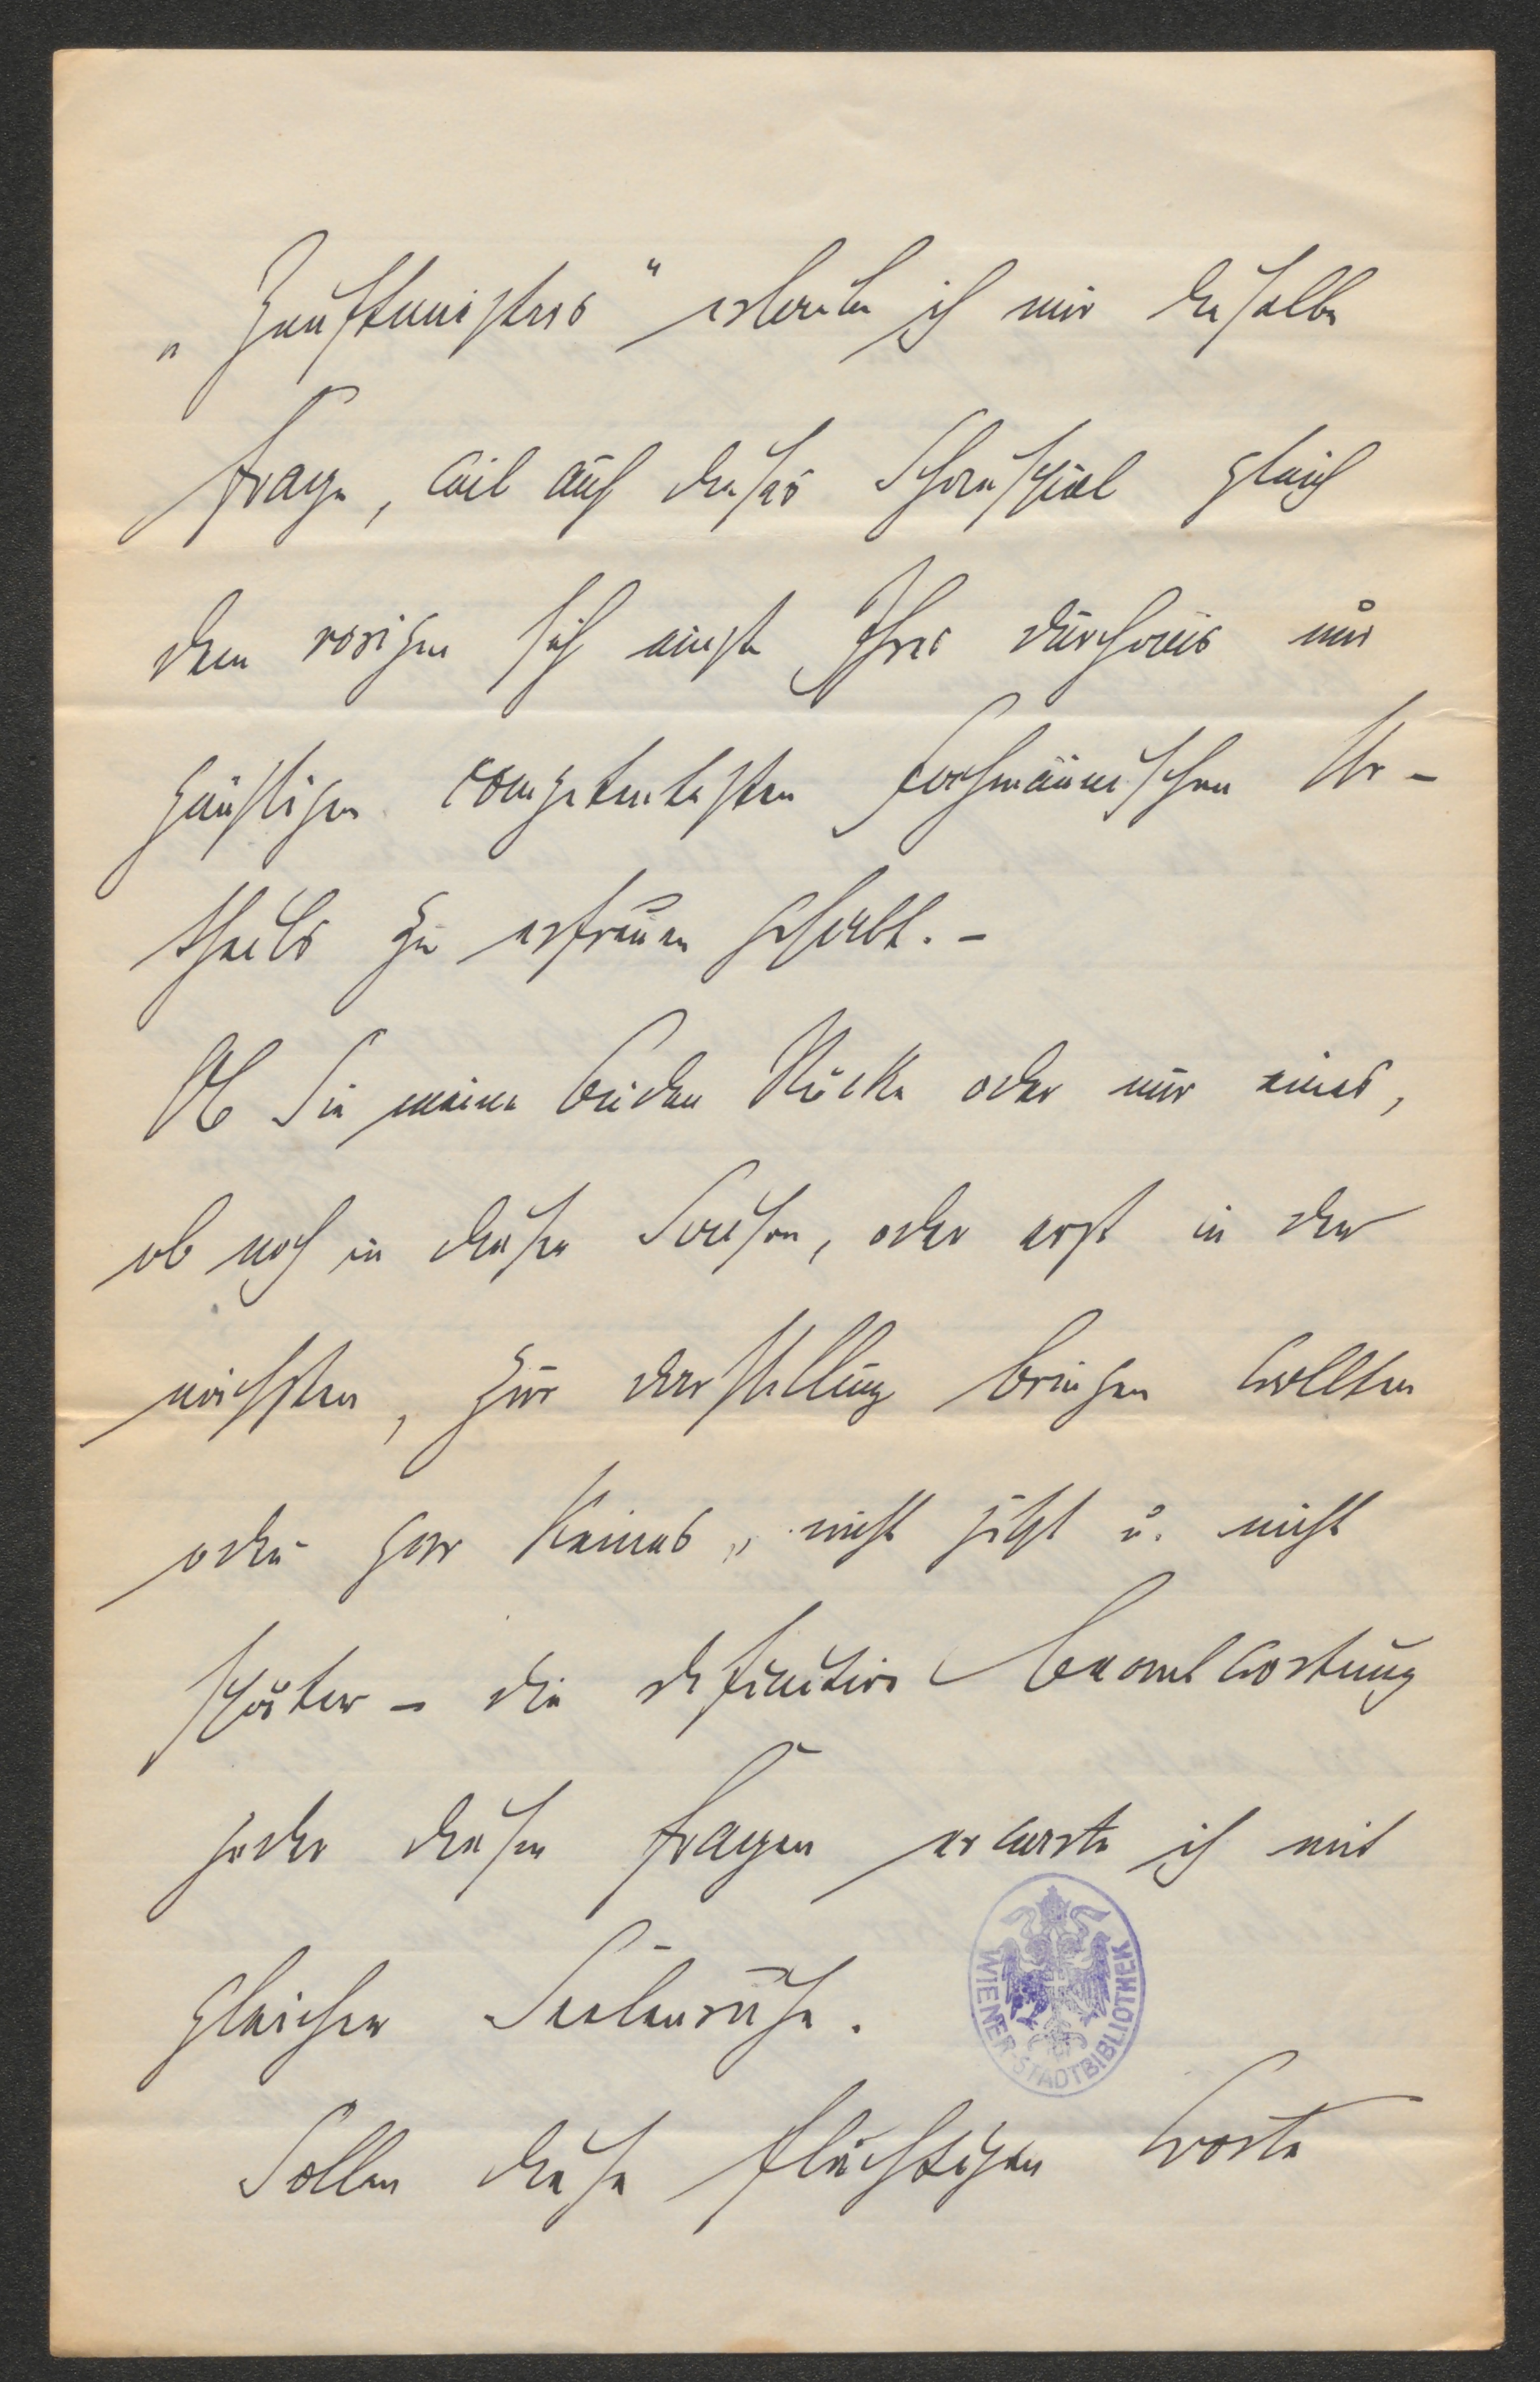 „Zunftmeisters“ erlaube ich mir dieselbe
Frage, weil auch dieses Schauspiel gleich
dem vorigen sich einst Ihres durchaus nur
günstigen competentesten fachmännischen Ur-
theils zu erfreuen gehabt. -
Ob Sie meine beiden Stücke oder nur eines,
ob noch in dieser Saison, oder erst in der
nächsten, zur Darstellung bringen wollten
oder gar Keines, nicht jetzt u. nicht
später - die definitive Beantwortung
jeder dieser Fragen erwarte ich mit
gleicher Seelenruhe.
WIENER STADTBIBLIOTHEK
Sollen diese flüchtigen Worte